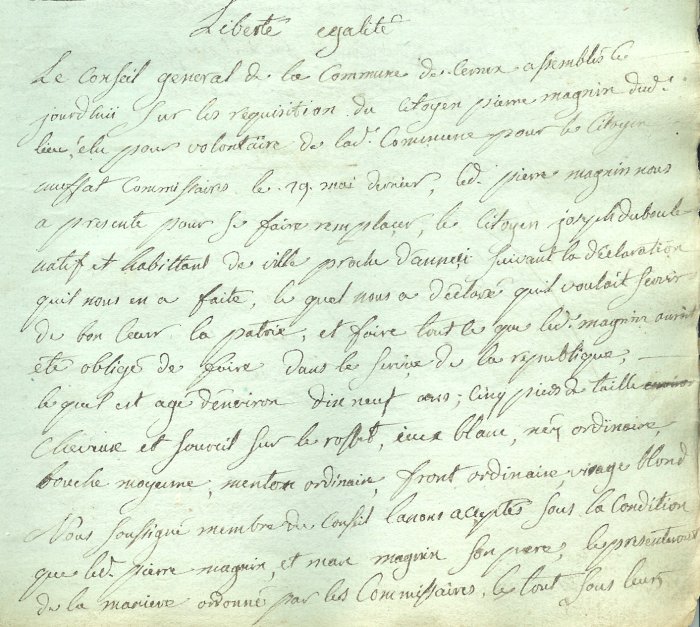 Liberté egalité
Le Conseil general de la Commune de Cernex assemblés ce
jourdhui sur les requisition du Citoyen pierre magnin dud.
lieu, élu pour volontaire de lad. Commune pour le Citoyen
Commissaires le 19 mai dernier, led. pierre magnin nous
a presenté pour se faire remplacer, le Citoyen joseph duboule
natif et habittant de ville proche d'anneci suivant la déclaration
quil nous en a faite, le quel nous a déclaré quil voulait servir
de bon Cœur la patrie, et faire tout ce que led. magnin auroit
été obligé de faire dans le service de la republique,
le quel est agé d'environ dix neuf ans, Cinq pieds de taille
Cheveux et sourcil sur le rosset, ieux blanc, néz ordinaire,
bouche moyenne, menton ordinaire, front ordinaire, visage blond
Nous soussigné membre du Conseil lavons acceptés sous la Condition
que led. pierre magnin, et marc magnin son pere, le presenteront
de la maniere ordonné par les Commissaires, le tout sous leurs